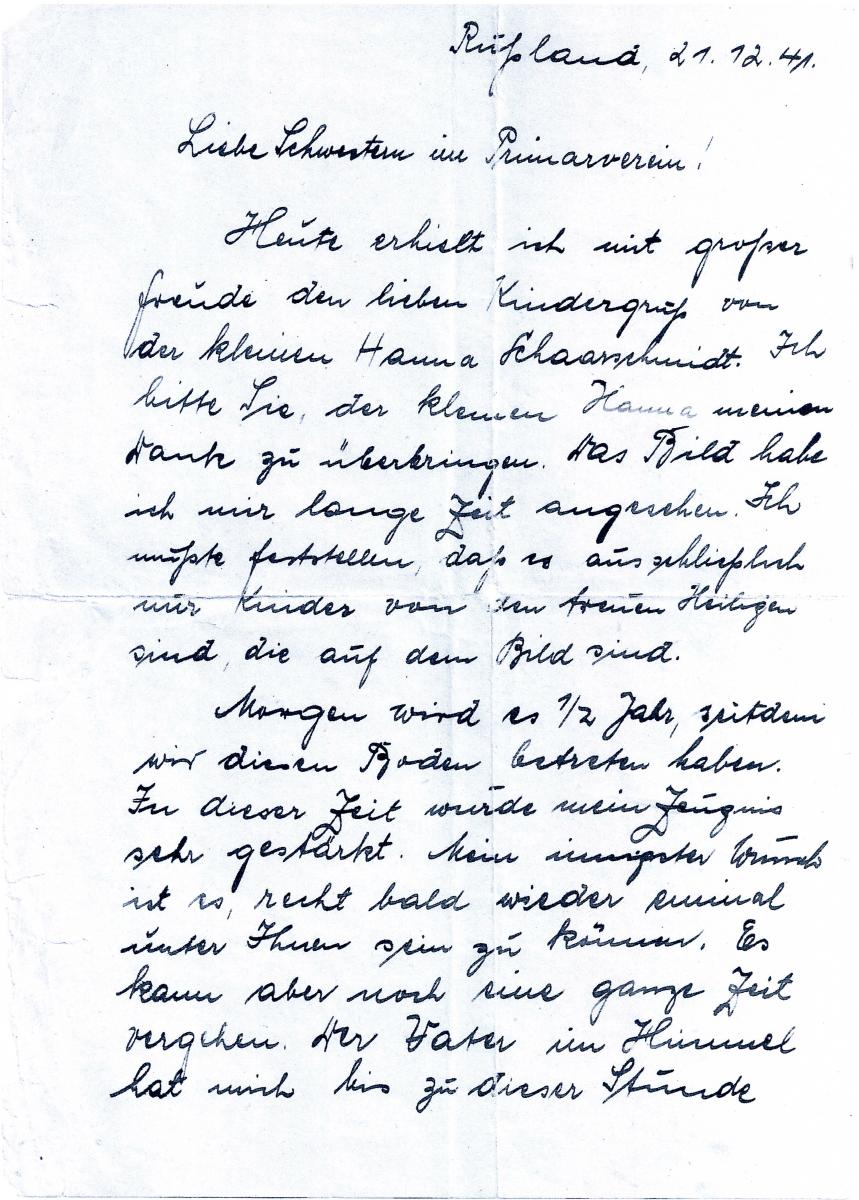 Rußland, 21. 12. 41.
Liebe Schwestern im Primarverein!
Heute erhielt ich mit großer
Freude den lieben Kindergruß von
der kleinen Hanna Schaarschmidt. Ich
bitte Sie, der kleinen Hanna meinen
Dank zu überbringen. Das Bild habe
ich mir lange Zeit angesehen. Ich
mußte feststellen, daß es ausschließlich
nur Kinder von den treuen Heiligen
sind, die auf dem Bild sind.
Morgen wird es 1/2 Jahr, seitdem
wir diesen Boden betreten haben.
In dieser Zeit wurde mein Zeugnis
sehr gestärkt. Mein innigster Wunsch
ist es, recht bald wieder einmal
unter Ihnen sein zu können. Es
kann aber noch eine ganze Zeit
vergehen. Der Vater im Himmel
hat mich bis zu dieser Stunde